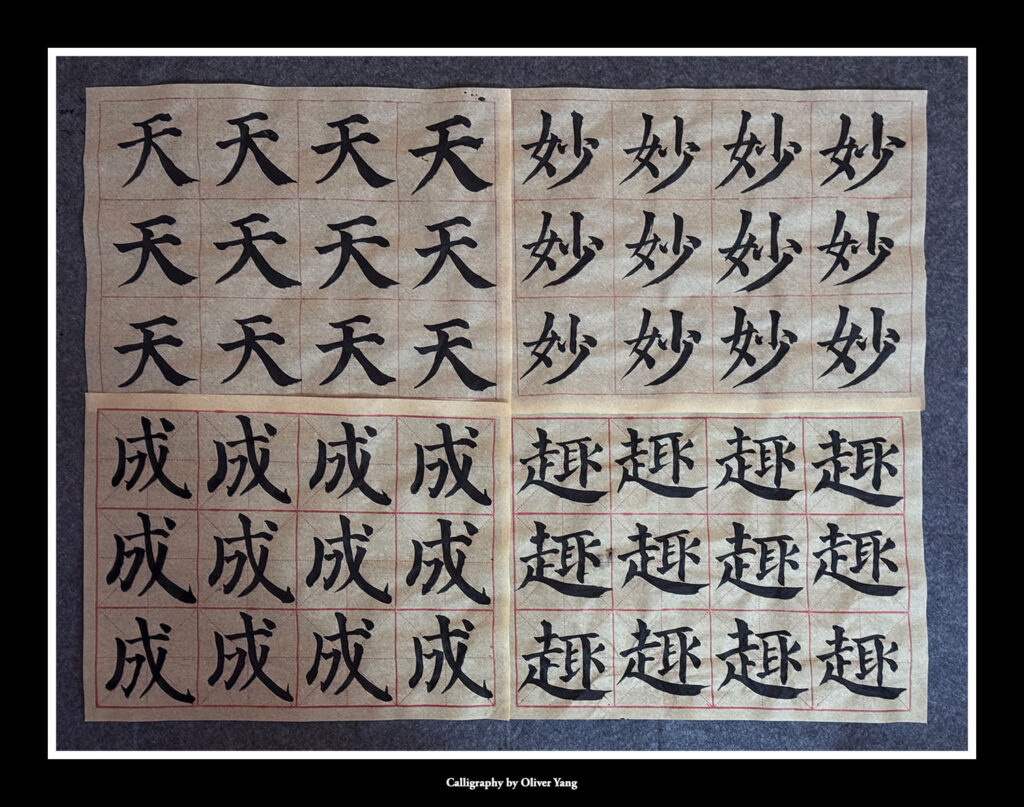 天天天天 妙妙妙妙
天天天天 妙妙妙妙
天天天天 妙妙妙妙
成成成成 趣趣趣趣
成成成成 趣趣趣趣
成成成成 趣趣趣趣
Calligraphy by Oliver Yang